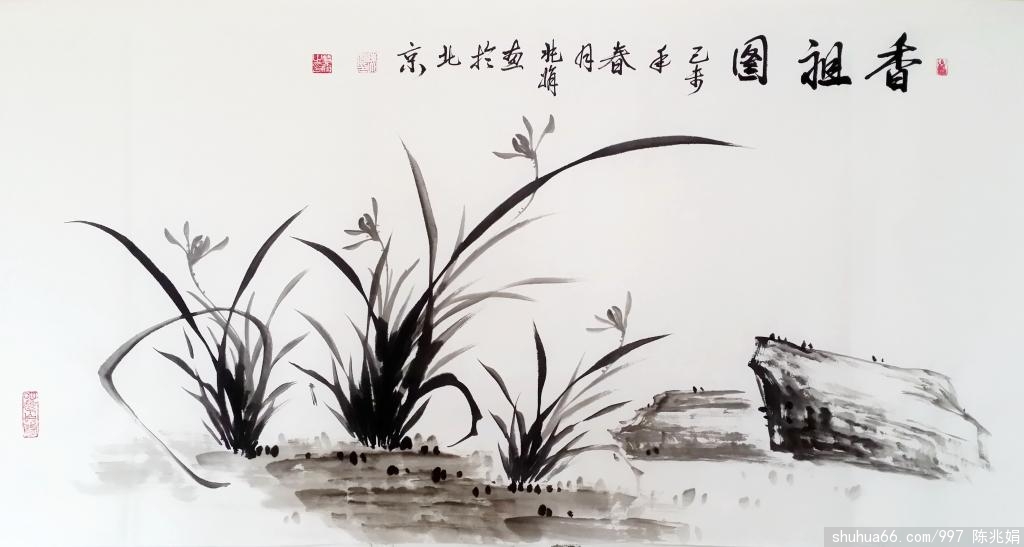 香祖图
己未年春月兆娟画於北京
shuhua66.com/997 陈兆娟